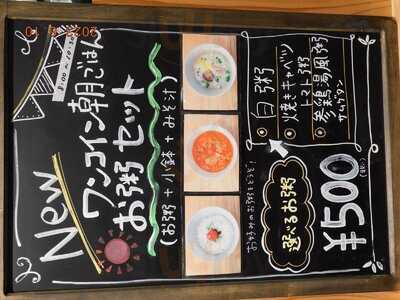 New
8:00～10:30
ワンコイン朝ごはん
お粥セット
(お粥＋小鉢＋みそ汁)
・白粥
・焼きキャベツ
トマト粥
・参鶏湯風粥
サムゲタン
お好みのお粥をどうぞ!
選べるお粥
¥500